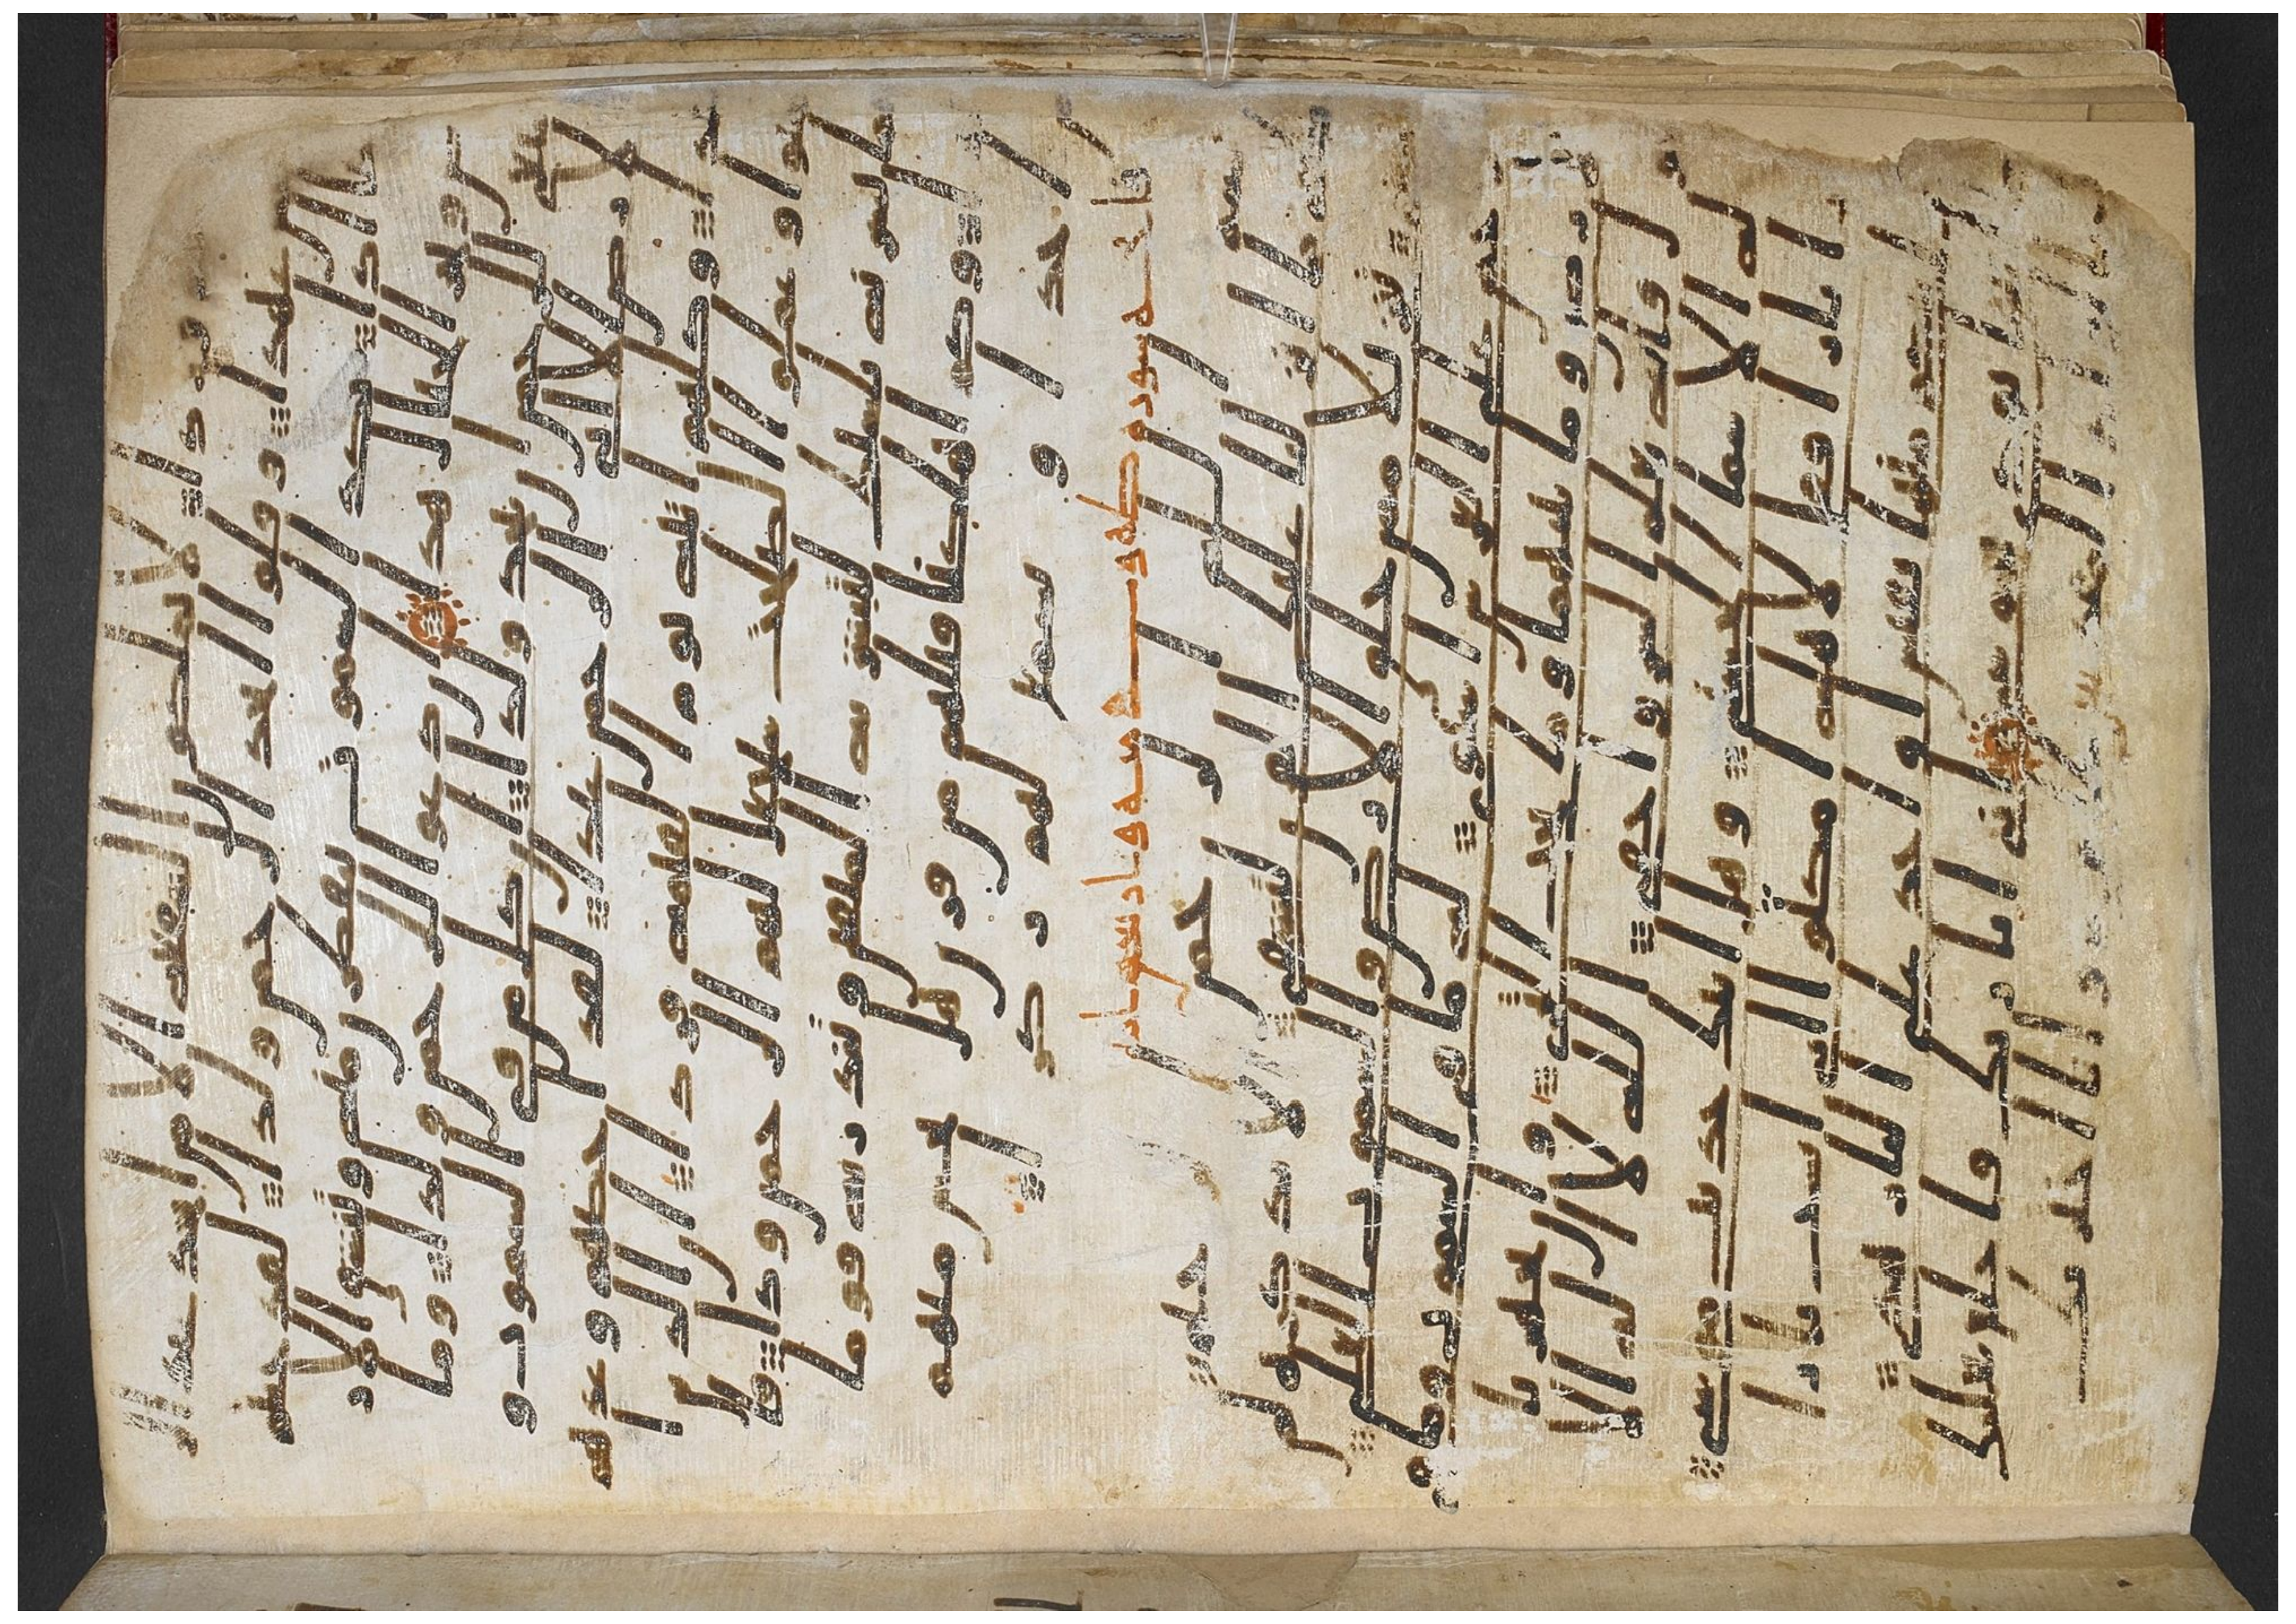 دا لا يملكون الشفعه الا من اتخذ عند الر
حمن عهدا وقالوا اتخذ الرحمن ولدا لقد جئ
تم شيا ادا تكد السموت يتفطرن منه وتنشق الا
رض وتخر الجبال هدا ان دعوا للرحمن ولدا وما
ينبغي للرحمن ان يتخذ ولدا ان كل من في السموت و
الارض الا اتي الرحمن عبدا لقد احصهم وعد
هم عدا وكلهم اتيه يوم القيمه فردا ان الذ
ين امنوا وعملوا الصلحت سيجعل لهم الرحمن ودا فا
نما يسرنه بلسنك لتبشر به المتقين وتنذر به قوما
لدا وكم اهلكنا قبلهم من قرن هل تحس منهم
من احد او تسمع لهم ركزا
بسم الله الرحمن الرحيم طه
ما انزلنا عليك القران لتشقى الا تذكره لم
ن يخشى تنزيلا ممن خلق الارض والسموت العلى
الرحمن على العرش استوى له ما في السموت وما
في الارض وما بينهما وما تحت الثرى وان تجهر با
لقول فانه يعلم السر واخفى الله لا اله الا
هو له الاسما الحسنى وهل اتيك حديث موسى
اذ را نارا فقال لاهله امكثوا اني انست نارا
لعلي اتيكم منها بقبس او اجد على النار هدى
فلما اتيها نودي يموسى اني انا ربك فاخلع نعليك
انك بالواد المقدس طوى وانا اخترتك